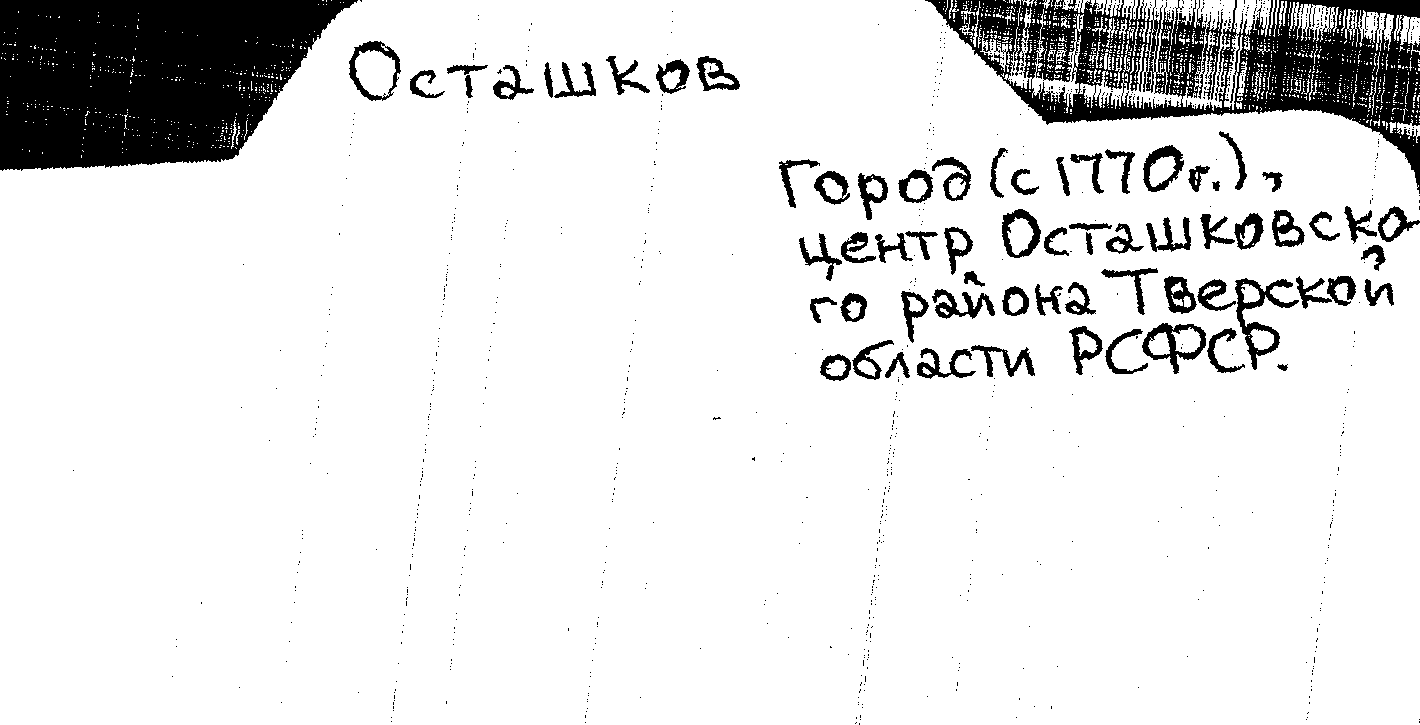 Осташков
Город (с 1770 г.),
центр Осташковско
го района Тверской
области РСФСР.